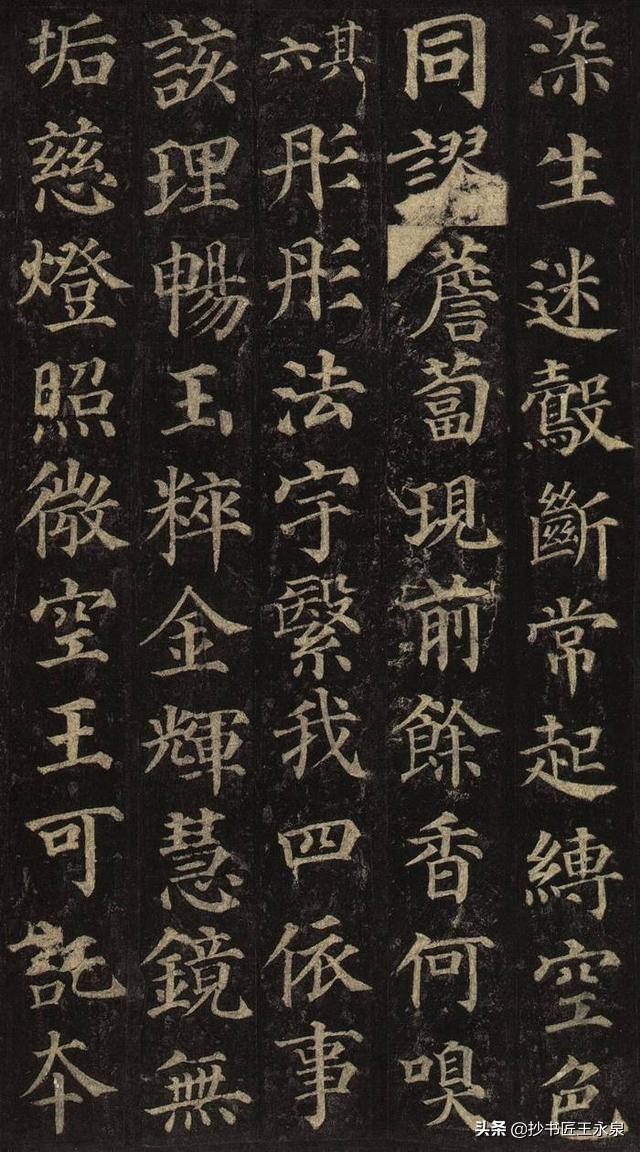 染生迷鷇斷常起縛空色
同謬薝蔔現前餘香何嗅
其六彤彤法宇繄我四依事
該理暢玉粹金輝慧鏡無
垢慈燈照微空王可託本
头条 @抄书匠王永泉